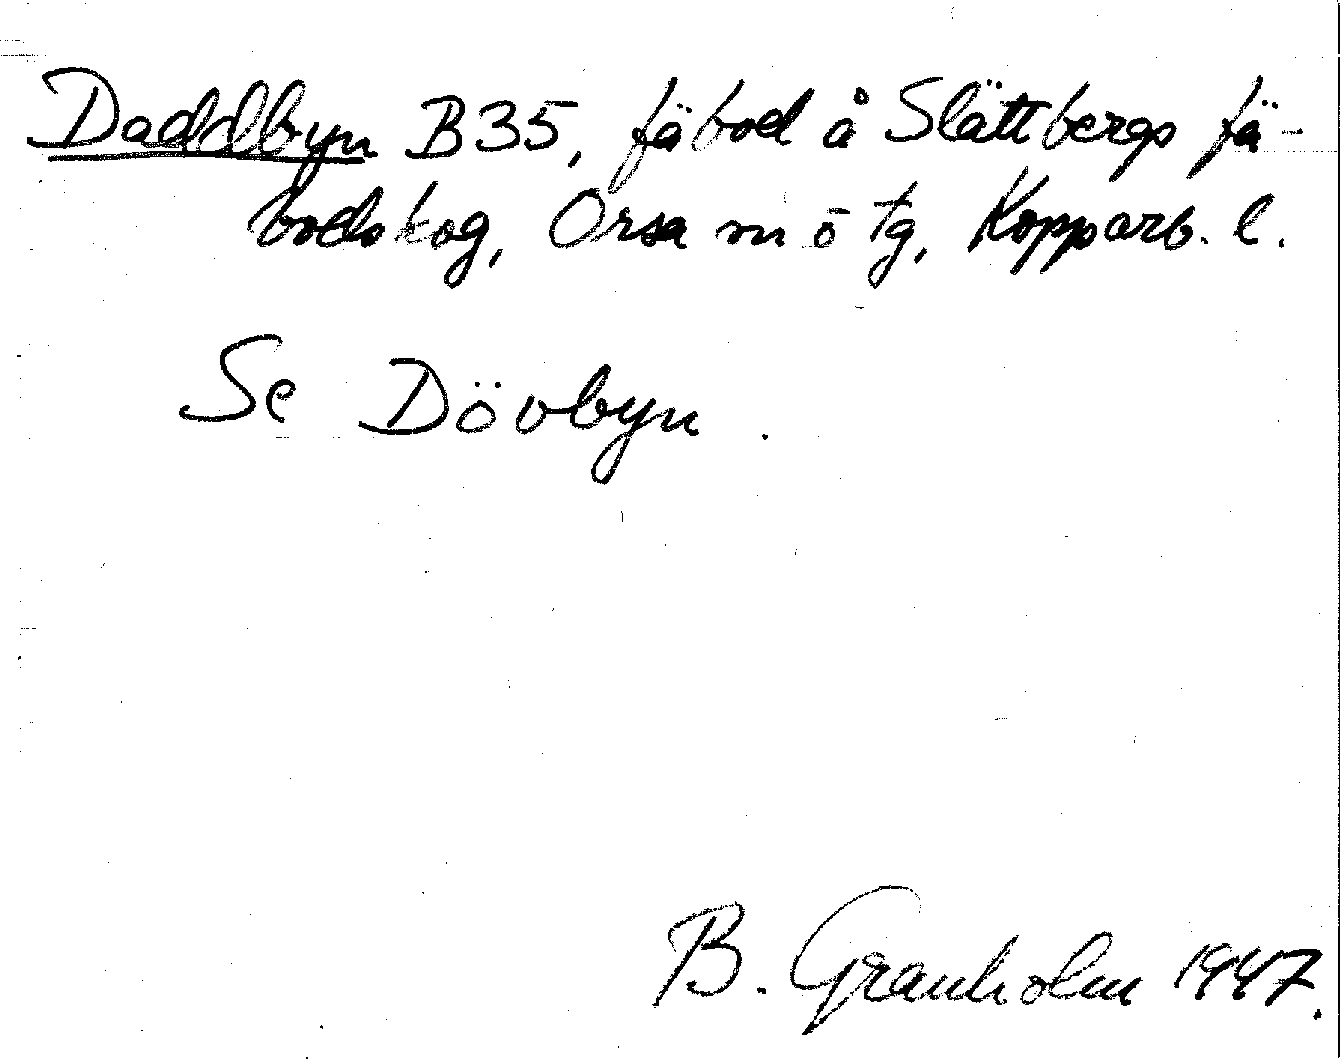 Daddbyn B35, fäbod å Slättbergs fä-
bodskog, Orsa sn ö tg, Kopparb. l.
Se Dövbyn.
B. Granholm 1947.